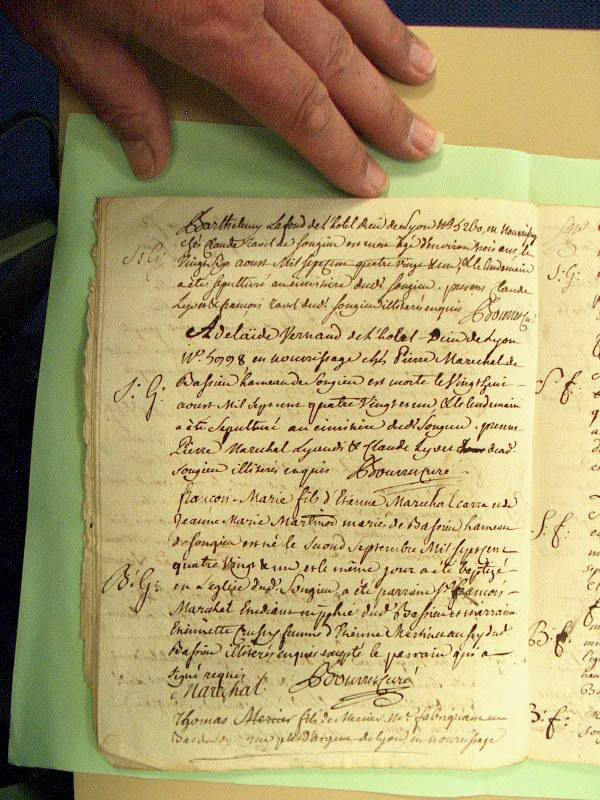 Barthelemy Lafond de l'hotel Dieu de Lyon N° 5260, en nourrissage
chés Claude Ravel de Songieu est mort agé d'environ trois ans, le
S: G: Vingt six aoust Mil sept cent quatre vingt et un, & le lendemain
a été sépulturé au cimitiere dud. Songieu. presens Claude
Lyvet & francois ravel dud. Songieu illiterés enquis Bourru Curé
Adelaide Vernand de L'hotel-Dieu de Lyon
N°. 5998 en nourrissage chés Pierre Marechal de
S: G: Bassieu hameau de Songieu est morte le Vingt huit
aoust Mil sept cent quatre Vingt et un & le lendemain
a été Sepulturé au cimitiere dud. Songieu. presens
Pierre Marechal Lyaudi & Claude Lyvet de ad.
Songieu illiterés enquis Bourru Curé
francois-Marie fils d'Etienne Marechal carra et de
Jeanne Marie Martinod mariés de Bassieu hameau
de Songieu est né le second Septembre Mil sept cent
quatre Vingt & un et le même jour a été baptizé
B: G: en L'église dud. Songieu, a été parrain Sr. francois-
Marechal Etudiant en dud. Bassieu et marraine
Etiennette femme d'Etienne Martinod aussy dud.
Bassieu illiterés enquis excepté le parrain qui a
signé requis
Marechal Bourru Curé
Thomas Mercier fils de Mercier Md. fabriquant en
Bas de rue plat d'argent de Lyon en nourrissage
S: G:
S: f:
S: f:
B: f:
B: f: